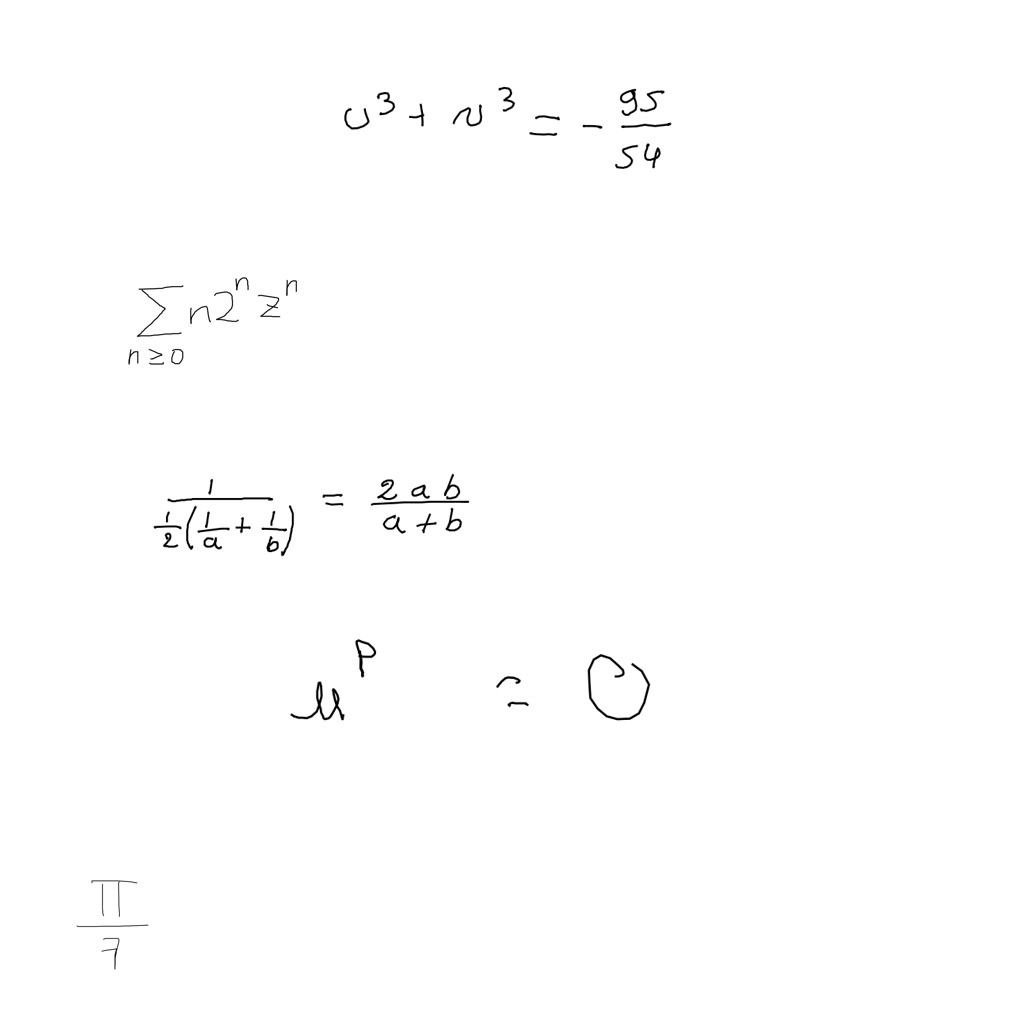 u³ + v³ = - 95/54
∑_{n≥0} n2ⁿzⁿ
1/(1/2(1/a + 1/b)) = 2ab/(a+b)
u^p = 0
π/7